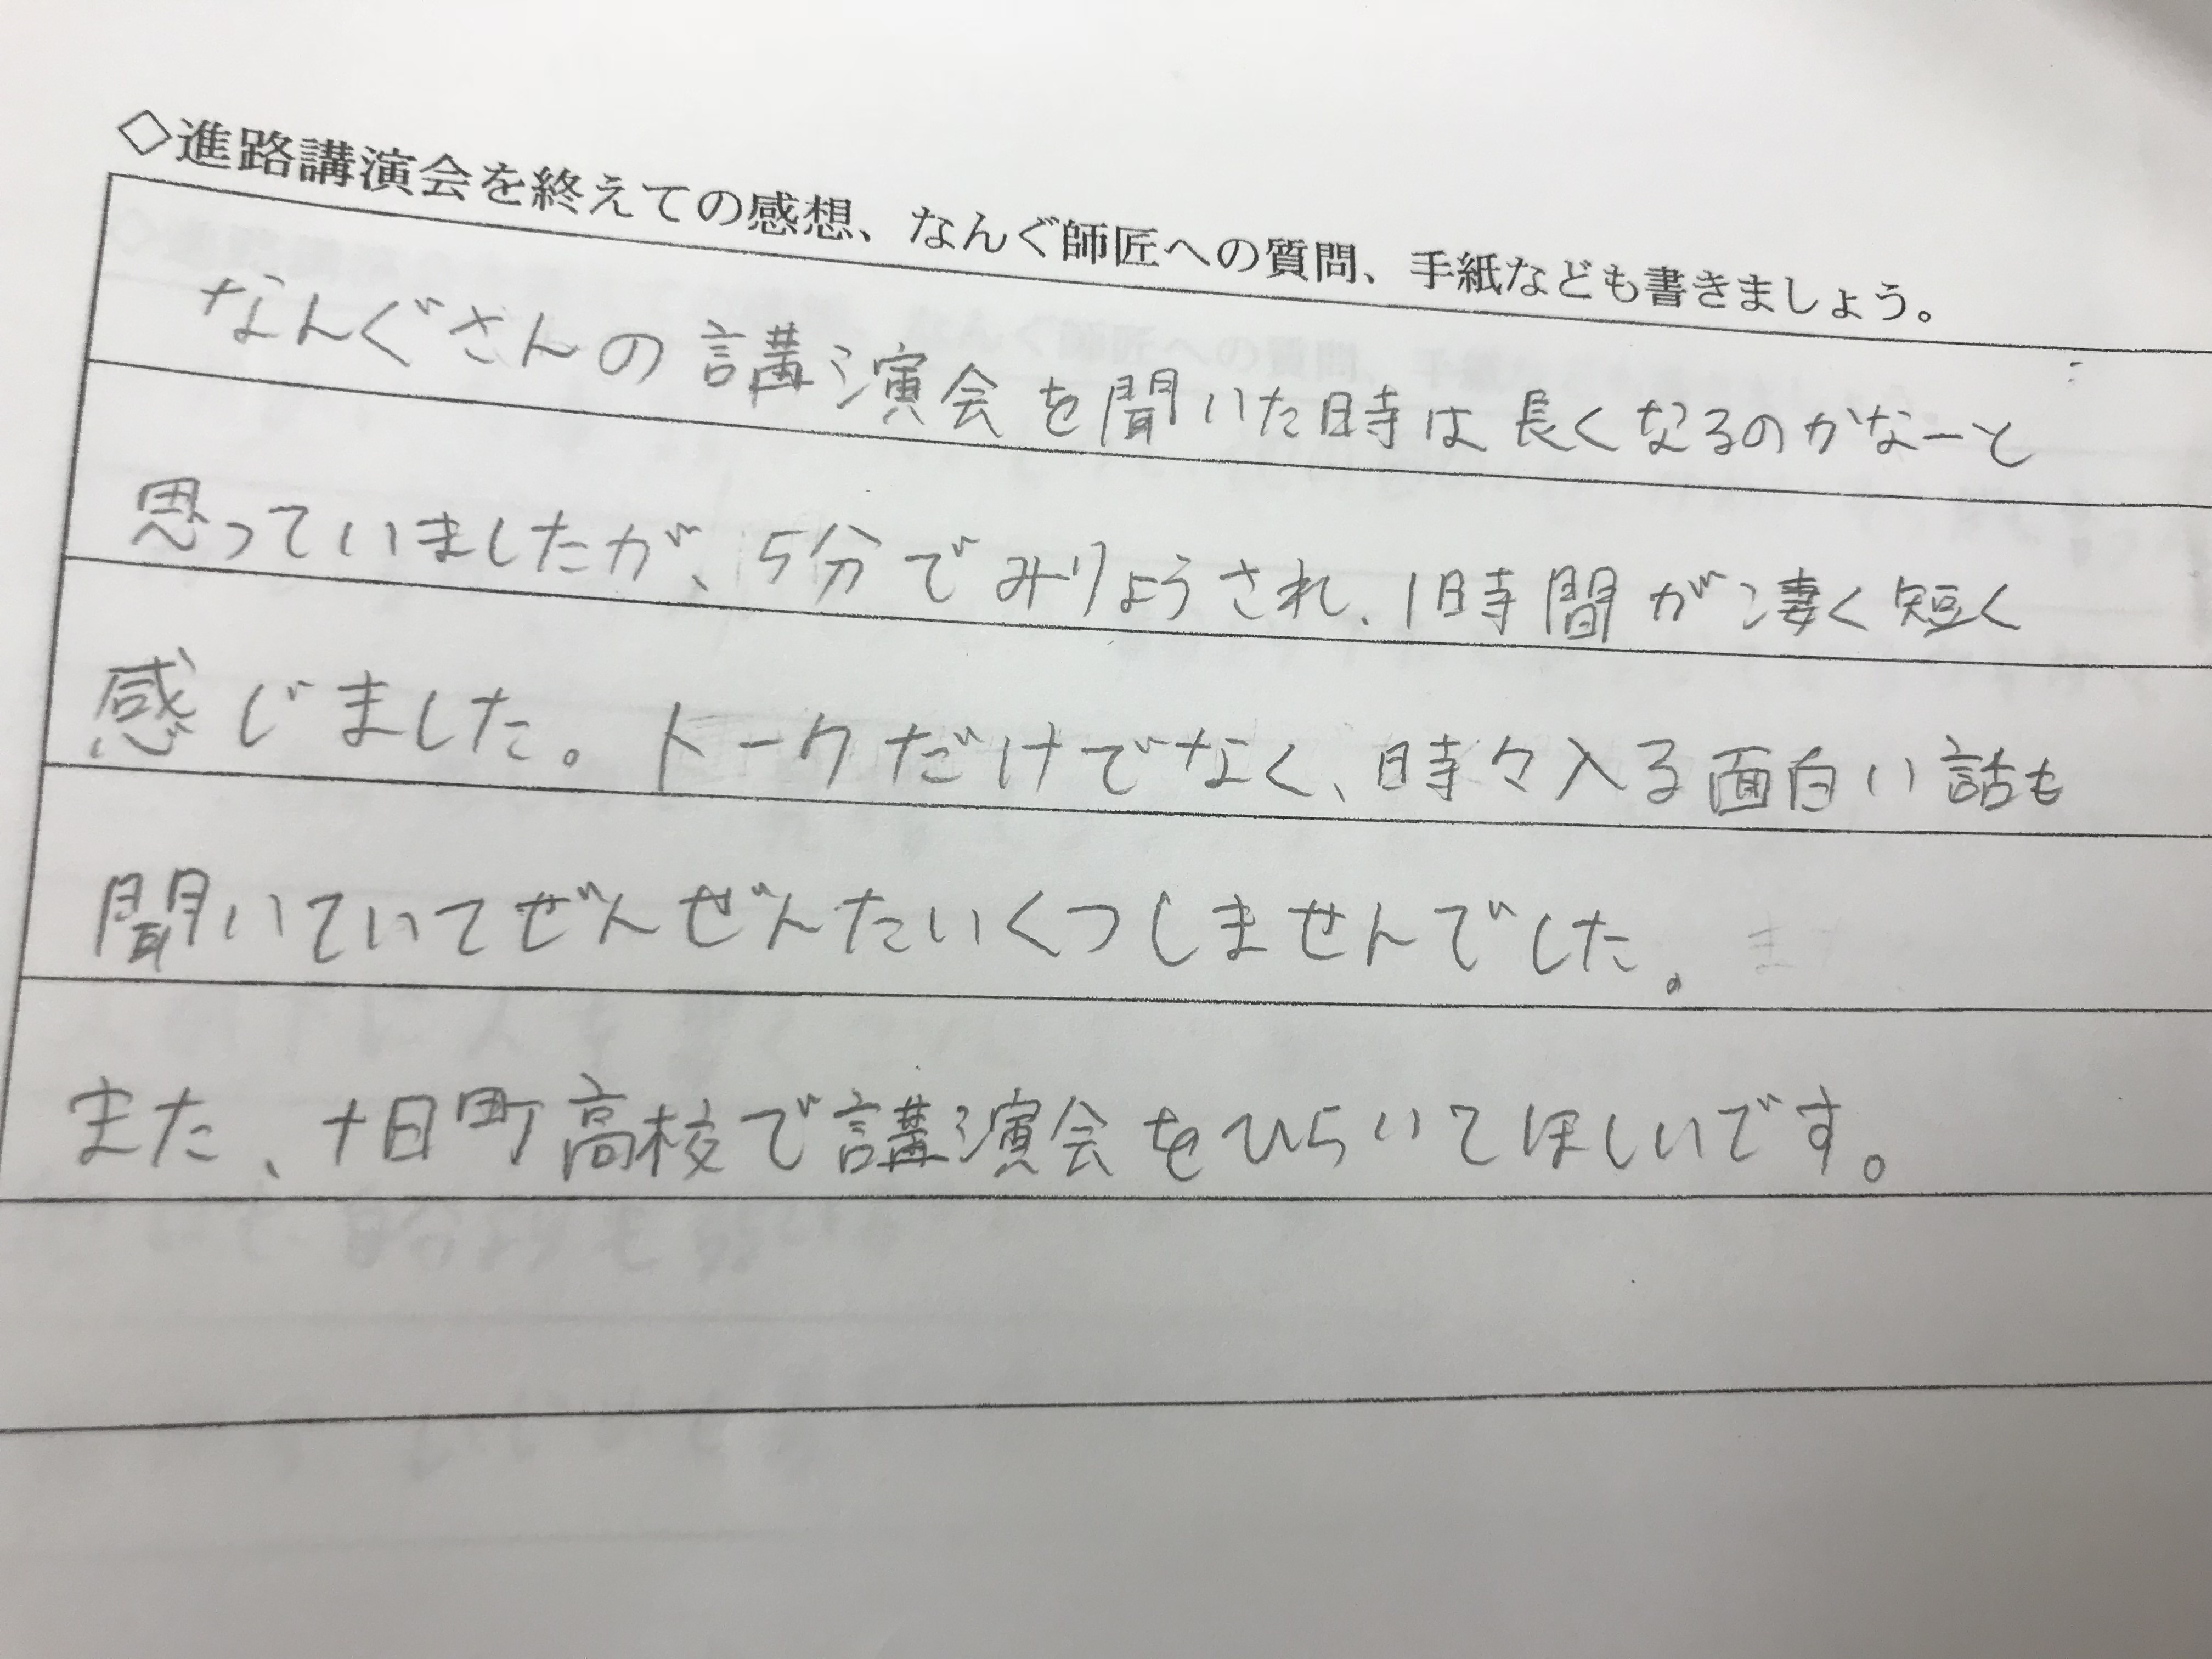 ◇進路講演会を終えての感想、なんぐ師匠への質問、手紙なども書きましょう。
なんぐさんの講演会を聞いた時は長くなるのかなーと
思っていましたが、5分でみりょうされ、1時間が凄く短く
感じました。トークだけでなく、時々入る面白い話も
聞いていてぜんぜんたいくつしませんでした。
また、十日町高校で講演会をひらいてほしいです。